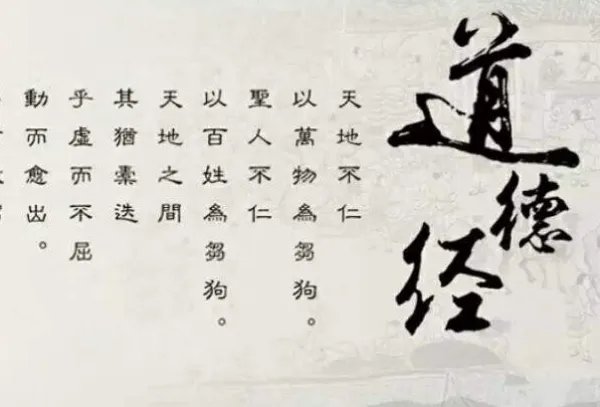 道德经
天地不仁
以萬物為芻狗。
聖人不仁
以百姓為芻狗。
天地之間
其猶橐迭
乎虛而不屈
動而愈出。